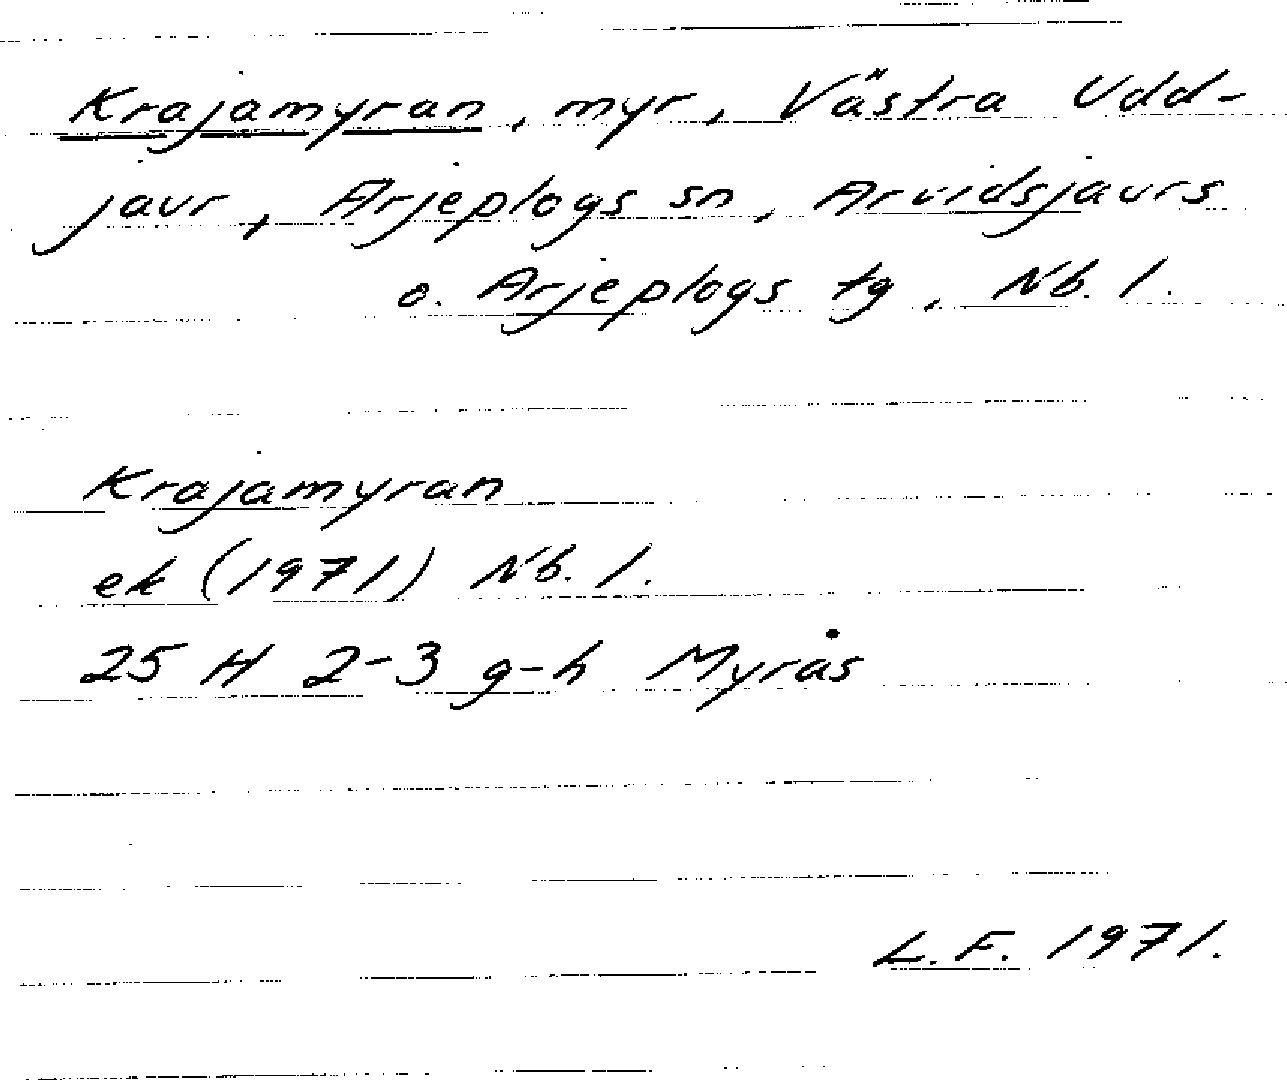 Krajamyran, myr, Västra Udd-
jaur, Arjeplogs sn, Arvidsjaurs
o. Arjeplogs tg, Nb. l.
Krajamyran
ek (1971) Nb. l.
25 H 2-3 g-h Myrås
L. F. 1971.